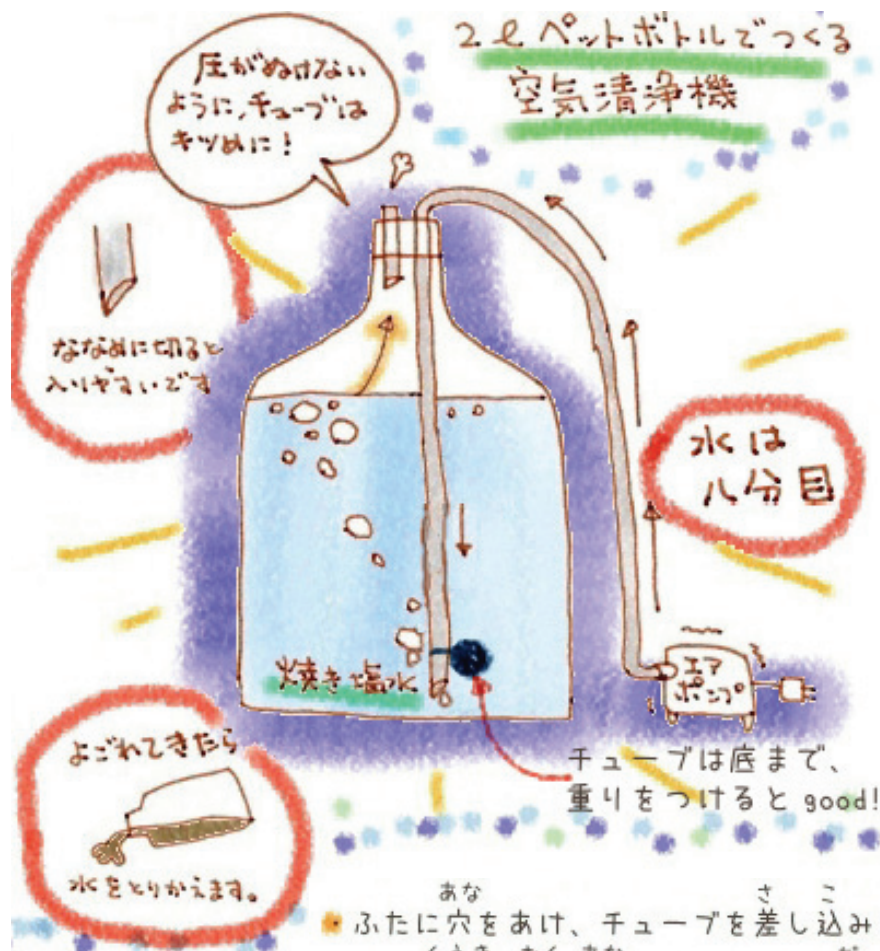 2ℓペットボトルでつくる
空気清浄機
圧がぬけない
ように、チューブは
キツめに!
ななめに切ると
入りやすいです
水は
八分目
エア
ポンプ
焼き塩水
チューブは底まで、
重りをつけるとgood!
よごれてきたら
水をとりかえます。
あな さ こ
ふたに穴をあけ、チューブを差し込み